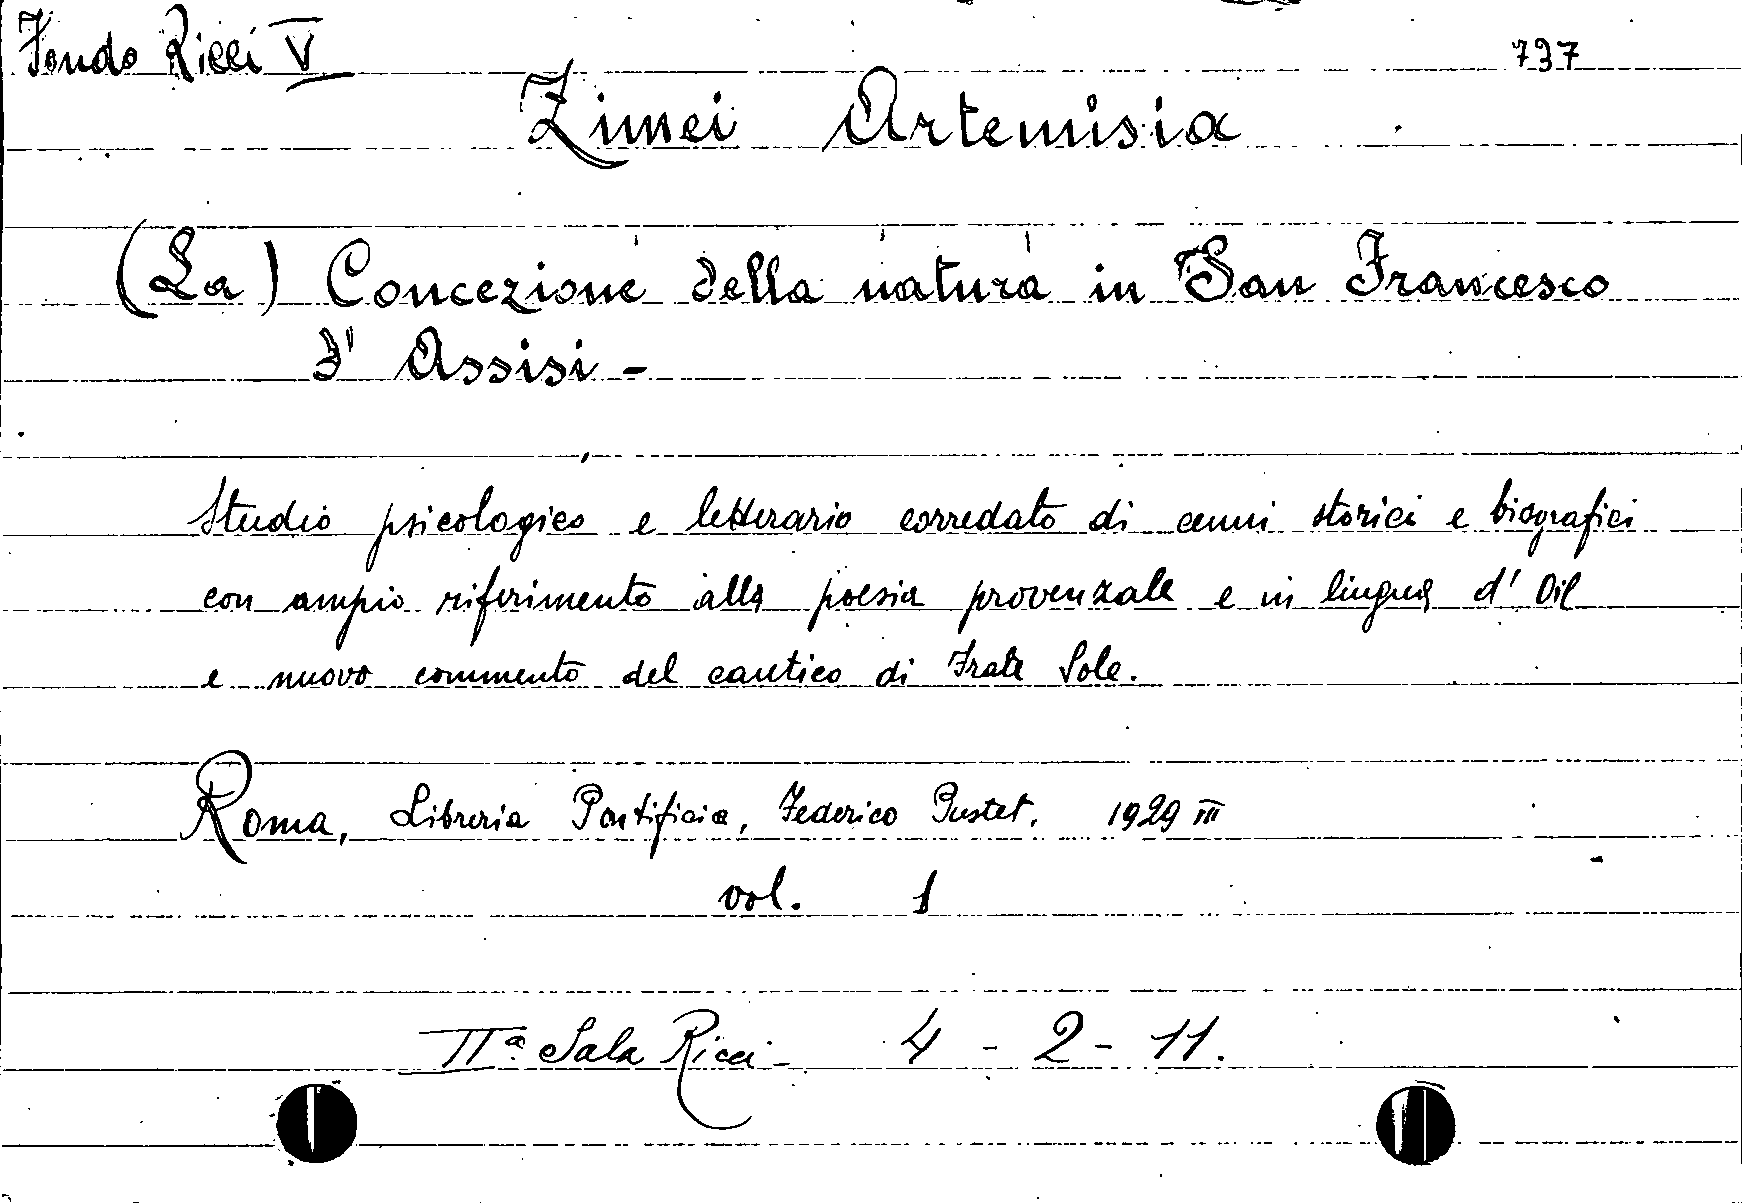 Fondo Ricci V
737
Zimei Artemisia
(La) Concezione della natura in San Francesco
d' Assisi -
Studio psicologico e letterario corredato di cenni storici e biografici
con ampio riferimento alla poesia provenzale e in lingua d' Oil
e nuovo commento del cantico di Frate Sole.
Roma, Libreria Pontificia, Federico Pustet. 1929 III
vol. 1
IIª Sala Ricci - 4 - 2 - 11.